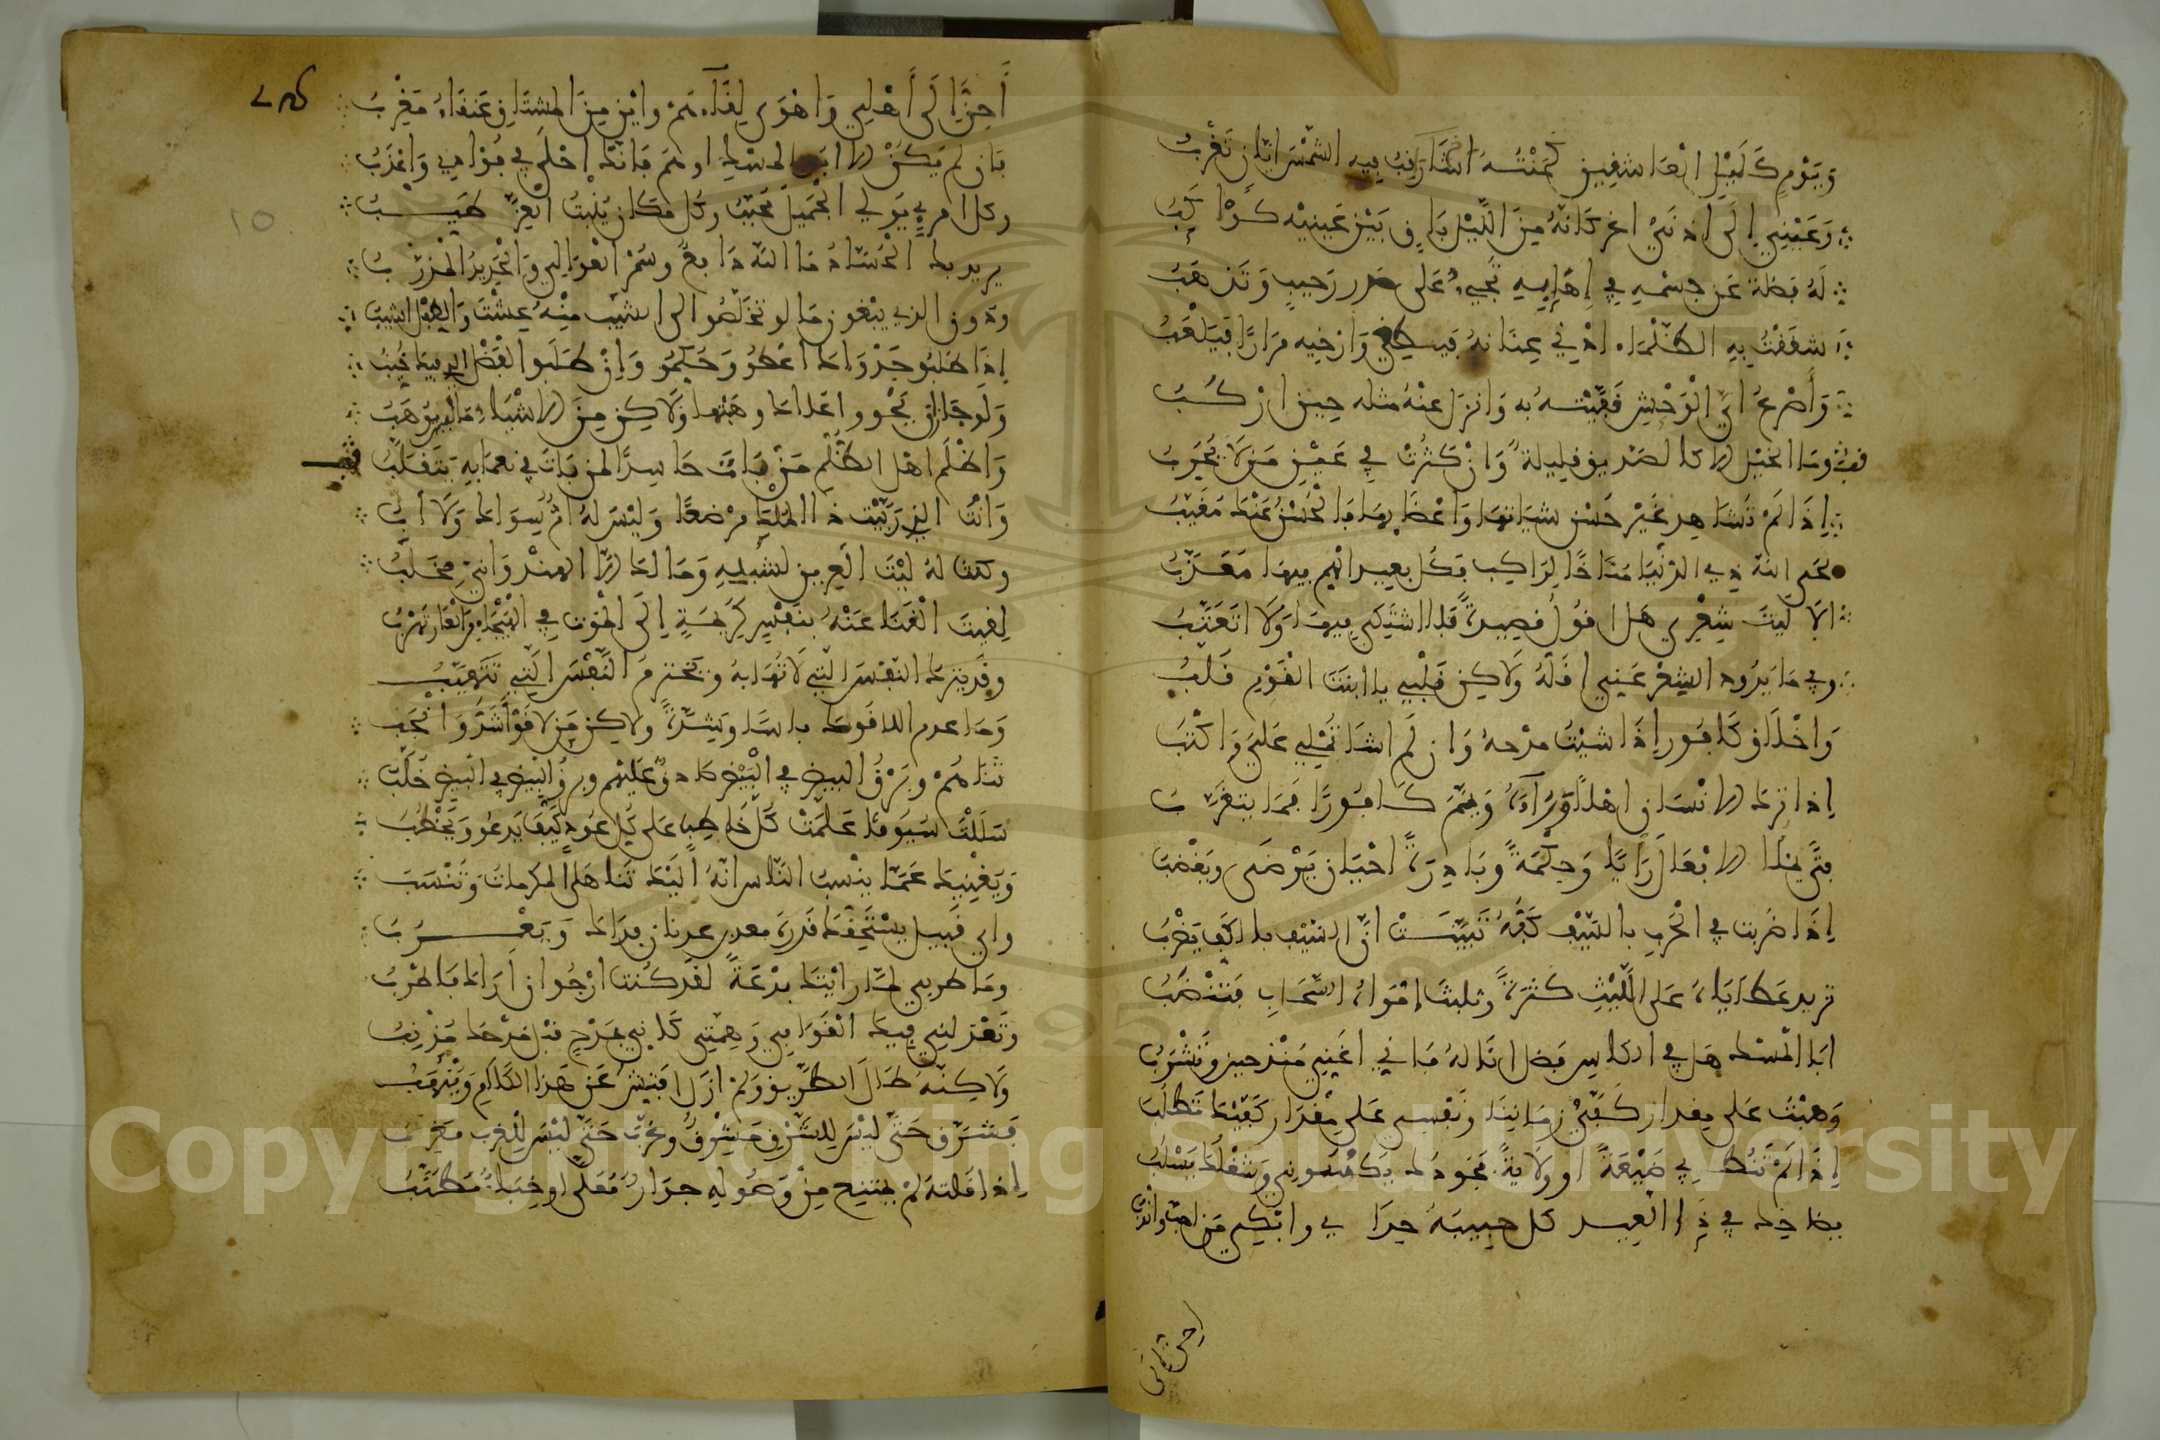 وَيَوْمٍ كَلَيْلِ الْعَاشقِينَ كَمَنْتُهُ اشَارَاقِبُ فِيهِ الشَّمْسَ ايّان تَغْرُبُ
وَعَيْنِي إلَى اذنَيْ اغر كَانّهُ مِنَ اللَّيْلِ بَاقٍ بَيْنَ عَيْنَيْهِ كَوْكَبُ
لَهُ فَضْلَة عَن جِسْمِهِ فِي إهَابِهِ تَجِيءُ عَلى صَدر رَحيبٍ وَتَذهَبُ
شققْتُ بِهِ الظّلْمَاء ادْنِي عِنَانهُ فَيَطغى وَارْخِيه مِرَارًا فَيَلْعَبُ
وَأصْرعُ ايّ الْوَحْشِ قَفَّيْتهُ به وَانزل عنْهُ مثله حِين ارْكَبُ
وما الخيل الا كالصّديق قليلةٌ وَانْ كثُرَتْ فِي عَيْنِ مَن لَا يُجَرِّبُ
إذَا لَمْ تُشاهِد غَيْرَ حُسْن شيَاتهَا وَاعْضَايهَا فَالْحُسْنُ عَنْكَ مُغَيَّبُ
لحَى اللهُ ذي الدّنْيَا مُنَاخًا لِرَاكِب فكل بعيد الهم فيهَا مُعَذّبُ
الا لَيْتَ شِعْرِي هَل اقولُ قَصِيدةً فَلا اشتَكِي فيهَا وَلَا اتَعَتَّبُ
وَبِي مَا يَذُود الشِعْر عَنِي اقَلّهُ وَلَاكِن قَلْبِي يا ابنَتَ الْقَوْمِ قُلَّبُ
وَاخْلَاق كَافُور إذَا شيْتُ مدْحهُ وَان لَم اشا تُمْلِي عَليَّ وَاكْتُبُ
إذا ترك الانْسَان اهْلًا وَرَاءَهُ وَيَمّمَ كَافُورًا فَمَا يتغَرَّبُ
فتًى يملا الافْعَالَ رَأيًا وَحِكْمَةً وَبَادِرَةً احْيَان يَرْضَى وَيَغْضَبُ
إذَا ضَرَبت في الحَربِ بِالسَّيْفِ كَفُّهُ تَبَيَّنْتَ انّ السَّيْف بِالكَفّ يَضْرِبُ
تزيد عَطَايَاهُ عَلى اللَّبْثِ كثرَةً وَتلبثُ امْوَاهُ السَّحَابِ فَتَنْضُبُ
ابَا الْمِسْك هَل فِي الكاسِ فضل انَالهُ فَاني اغَنِي مُنْذ حِينٍ وَتَشْرَبُ
وَهَبْتَ عَلى مِقدارِ كَفَّيْ زَمَانِنَا وَنَفْسِي عَلى مِقْدَار كَفّيْكَ تَطْلُبُ
إذَا لَمْ تَنُط بِي ضَيْعَةً او وِلَايةً فَجُودُك يَكْسُونِي وَشغْلُكَ يَسْلُبُ
يضاحِك فِي ذَا الْعِيد كل حبِيبَهُ حِذَائي وابْكِي مَن احِبّ وَانْدُبُ
احن إلى
أَحِنُّ إلَى أَهْلِي وَاهْوَى لِقَاءَهُمْ وايْنَ مِنَ المشتَاقِ عَنقَاءُ مُغْرِبُ
فان لم يَكُنْ الا ابُو المسك او هُم فَانّك احْلَى فِي فُوادِي وَاعْذَبُ
وكل امرِيٍ يُولي الْجَمِيلَ مُحَبّبٌ وكل مكَان يُنْبِتُ الْعِزّ طيّبُ
يريد بك الْحُسّادُ مَا اللهُ دَافِعٌ وَسُمْرُ الْعَوَالِي وَالْحَدِيدُ المُذَرّبُ
ودون الذي يبْغُون مَا لو تخَلّصُوا الى الشيْبِ مِنْهُ عِشْتَ وَالطِّفْل اشيبُ
إذَا طَلَبُوا جَدْوَاك اعْطُو وَحُكِّمُو وَإن طَلَبوا الْفَضْل الذي فيك خُيِّبُ
وَلَو جَازَ ان يَحْوو اعُلاك وهَبْتهَا وَلَاكِن مِنَ الاشْيَاء مَا ليس يُوهَبُ
وَاظْلَم اهْل الظُّلم مَنْ بَاتَ حَاسِدًا لمَن بَاتَ فِي نَعمَايهِ يَتَقَلّبُ
وَانْتَ الذِي رَبَّيْت ذَا المُلْكِ مرْضَعًا وَلَيْسَ لهُ أُمٌّ سِوَاك وَلَا أبُ
وكنتَ لهُ ليْث الْعَرِين لشبْلِهِ وَمَا لكَ الّا الهنْدُوَانِيّ مِخْلَبُ
لقيتَ الْقَنَا عَنْهُ بنَفْسٍ كَرِيمَةٍ إلَى المَوْت فِي الهَيْجَا مِنَ الْعَارِ تَهْرُبُ
وقَد يترك النّفْسَ الّتي لَا تَهَابهُ وَيَخترم النَّفْسَ الّتِي تَتَهَيّبُ
وَمَا عدم اللاقُوك باسًا وشِدّةً ولاكِن مَن لَاقَوْ أشَدُّ وَانْجَبُ
ثنَاهُمْ وَبَرْقُ البيض فِي الْبَيْض صَادقٌ عَلَيْهِم وبرقُ الْبَيْض فِي البيض خُلَّبُ
سَلَلْتَ سيُوفًا عَلّمَتْ كُلّ خَاطِبٍ عَلى كُلّ عُودٍ كَيْفَ يَدعُو وَيَخْطُبُ
وَيُغْنِيكَ عَمّا ينْسبُ النّاس انّهُ الَيْكَ تَنَاهَى المكرمَاتُ وَتُنْسَبُ
واي قَبِيل يسْتَحِقّك قَدرُهُ معد بن عدنان فِدَاك وَيَعْرُبُ
ومَا طربِي لمّا رايْتُكَ بِدْعَةً لقَد كُنت ارْجُو ان أرَاكَ فَاطْرَبُ
وَتَعْذلنِي فِيكَ الْقَوَافِي وَهِمّتِي كَانّي بِمَدْحٍ قَبْل مَدْحِكَ مُذْنِبُ
وَلَاكِنّهُ طَالَ الطّرِيقُ وَلمْ ازَل افَتّش عَن هَذا الكَلَامِ وَيُنْهَبُ
فَشَرّقَ حَتّى ليْسَ لِلشّرْقِ مَشْرِقٌ وَغَرّبَ حَتّى ليْسَ لِلْغَربِ مَغْرِبُ
إذا قلتهُ لمْ يمْتنِع مِنْ وُصُولهِ جِدَارٌ مُعَلّى او خِبَاءٌ مُطَنّبُ
10
Copyright © King Saud University
1957